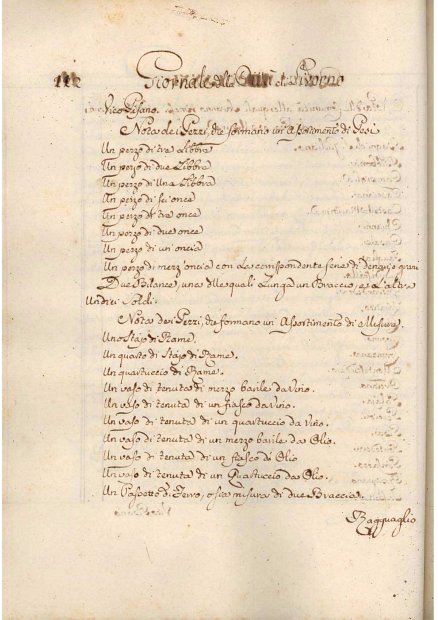 112 Giornale di Livorno
Vico Pisano.
Nota dei Pezzi, che formano un'Assortimento di Pesi
Un pezzo di tre Libbre
Un pezzo di due Libbre
Un pezzo di una Libbra
Un pezzo di sei once
Un pezzo di tre once
Un pezzo di due once
Un pezzo di un'oncia
Un pezzo di mezz'oncia con la corrispondente serie di denari, e grani
Due Bilance, una delle quali Lunga un Braccio, e L'altra
Undici Soldi.
Nota dei Pezzi, che formano un'Assortimento di Misure.
Uno Stajo di Rame.
Un quarto di Stajo di Rame.
Un quartuccio di Rame.
Un vaso di tenuta di mezzo barile da Vino.
Un vaso di tenuta di un fiasco da Vino.
Un vaso di tenuta di un quartuccio da Vino.
Un vaso di tenuta di un mezzo barile da Olio.
Un vaso di tenuta di un fiasco da Olio
Un vaso di tenuta di un Quartuccio da Olio.
Un Passetto di Ferro, o sia misura di due Braccia.
Ragguaglio